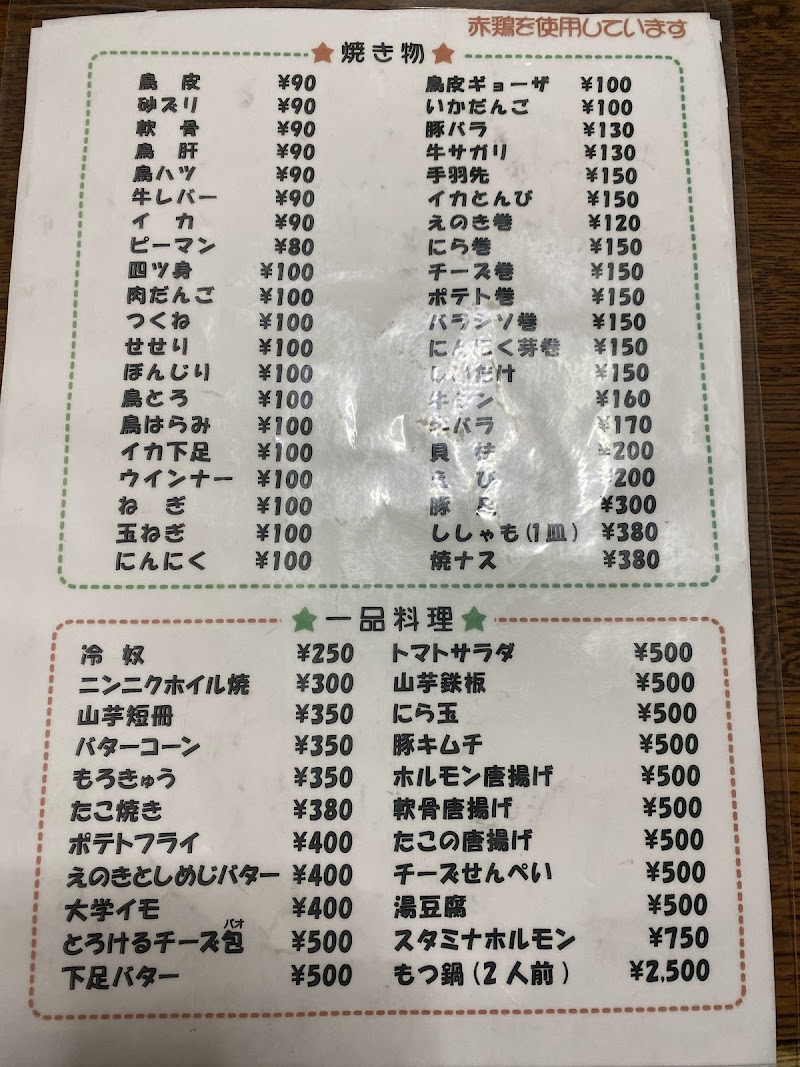 赤鶏を使用しています
★焼き物★
鳥皮 ¥90
砂ズリ ¥90
軟骨 ¥90
鳥肝 ¥90
鳥ハツ ¥90
牛レバー ¥90
イカ ¥90
ピーマン ¥80
四ツ身 ¥100
肉だんご ¥100
つくね ¥100
せせり ¥100
ぼんじり ¥100
鳥とろ ¥100
鳥はらみ ¥100
イカ下足 ¥100
ウインナー ¥100
ねぎ ¥100
玉ねぎ ¥100
にんにく ¥100
鳥皮ギョーザ ¥100
いかだんご ¥100
豚バラ ¥130
牛サガリ ¥130
手羽先 ¥150
イカとんび ¥150
えのき巻 ¥120
にら巻 ¥150
チーズ巻 ¥150
ポテト巻 ¥150
バラシソ巻 ¥150
にんにく芽巻 ¥150
しいたけ ¥150
牛タン ¥160
牛バラ ¥170
貝柱 ¥200
えび ¥200
豚足 ¥300
ししゃも(1皿) ¥380
焼ナス ¥380
★一品料理★
冷奴 ¥250
ニンニクホイル焼 ¥300
山芋短冊 ¥350
バターコーン ¥350
もろきゅう ¥350
たこ焼き ¥380
ポテトフライ ¥400
えのきとしめじバター ¥400
大学イモ ¥400
とろけるチーズ包 パオ ¥500
下足バター ¥500
トマトサラダ ¥500
山芋鉄板 ¥500
にら玉 ¥500
豚キムチ ¥500
ホルモン唐揚げ ¥500
軟骨唐揚げ ¥500
たこの唐揚げ ¥500
チーズせんべい ¥500
湯豆腐 ¥500
スタミナホルモン ¥750
もつ鍋(2人前) ¥2,500